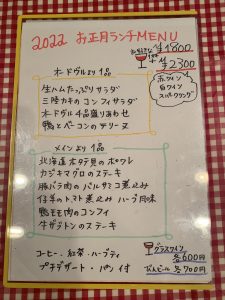 2022 お正月ランチMENU
¥1800
¥2300
オードヴルより1品
生ハムたっぷりサラダ
三陸カキのコンフィサラダ
オードヴル4品盛りあわせ
鴨とベーコンのテリーヌ
赤ワイン
白ワイン
スパークリング
メインより1品
北海道ホタテ貝のポワレ
カジキマグロのステーキ
豚バラ肉のバルサミコ煮込み
仔羊のトマト煮込み ハーブ風味
鴨モモ肉のコンフィ
牛ザブトンのステーキ
コーヒー、紅茶・ハーブティ
プチデザート・パン付
グラスワイン
各600円
びんビール 各700円